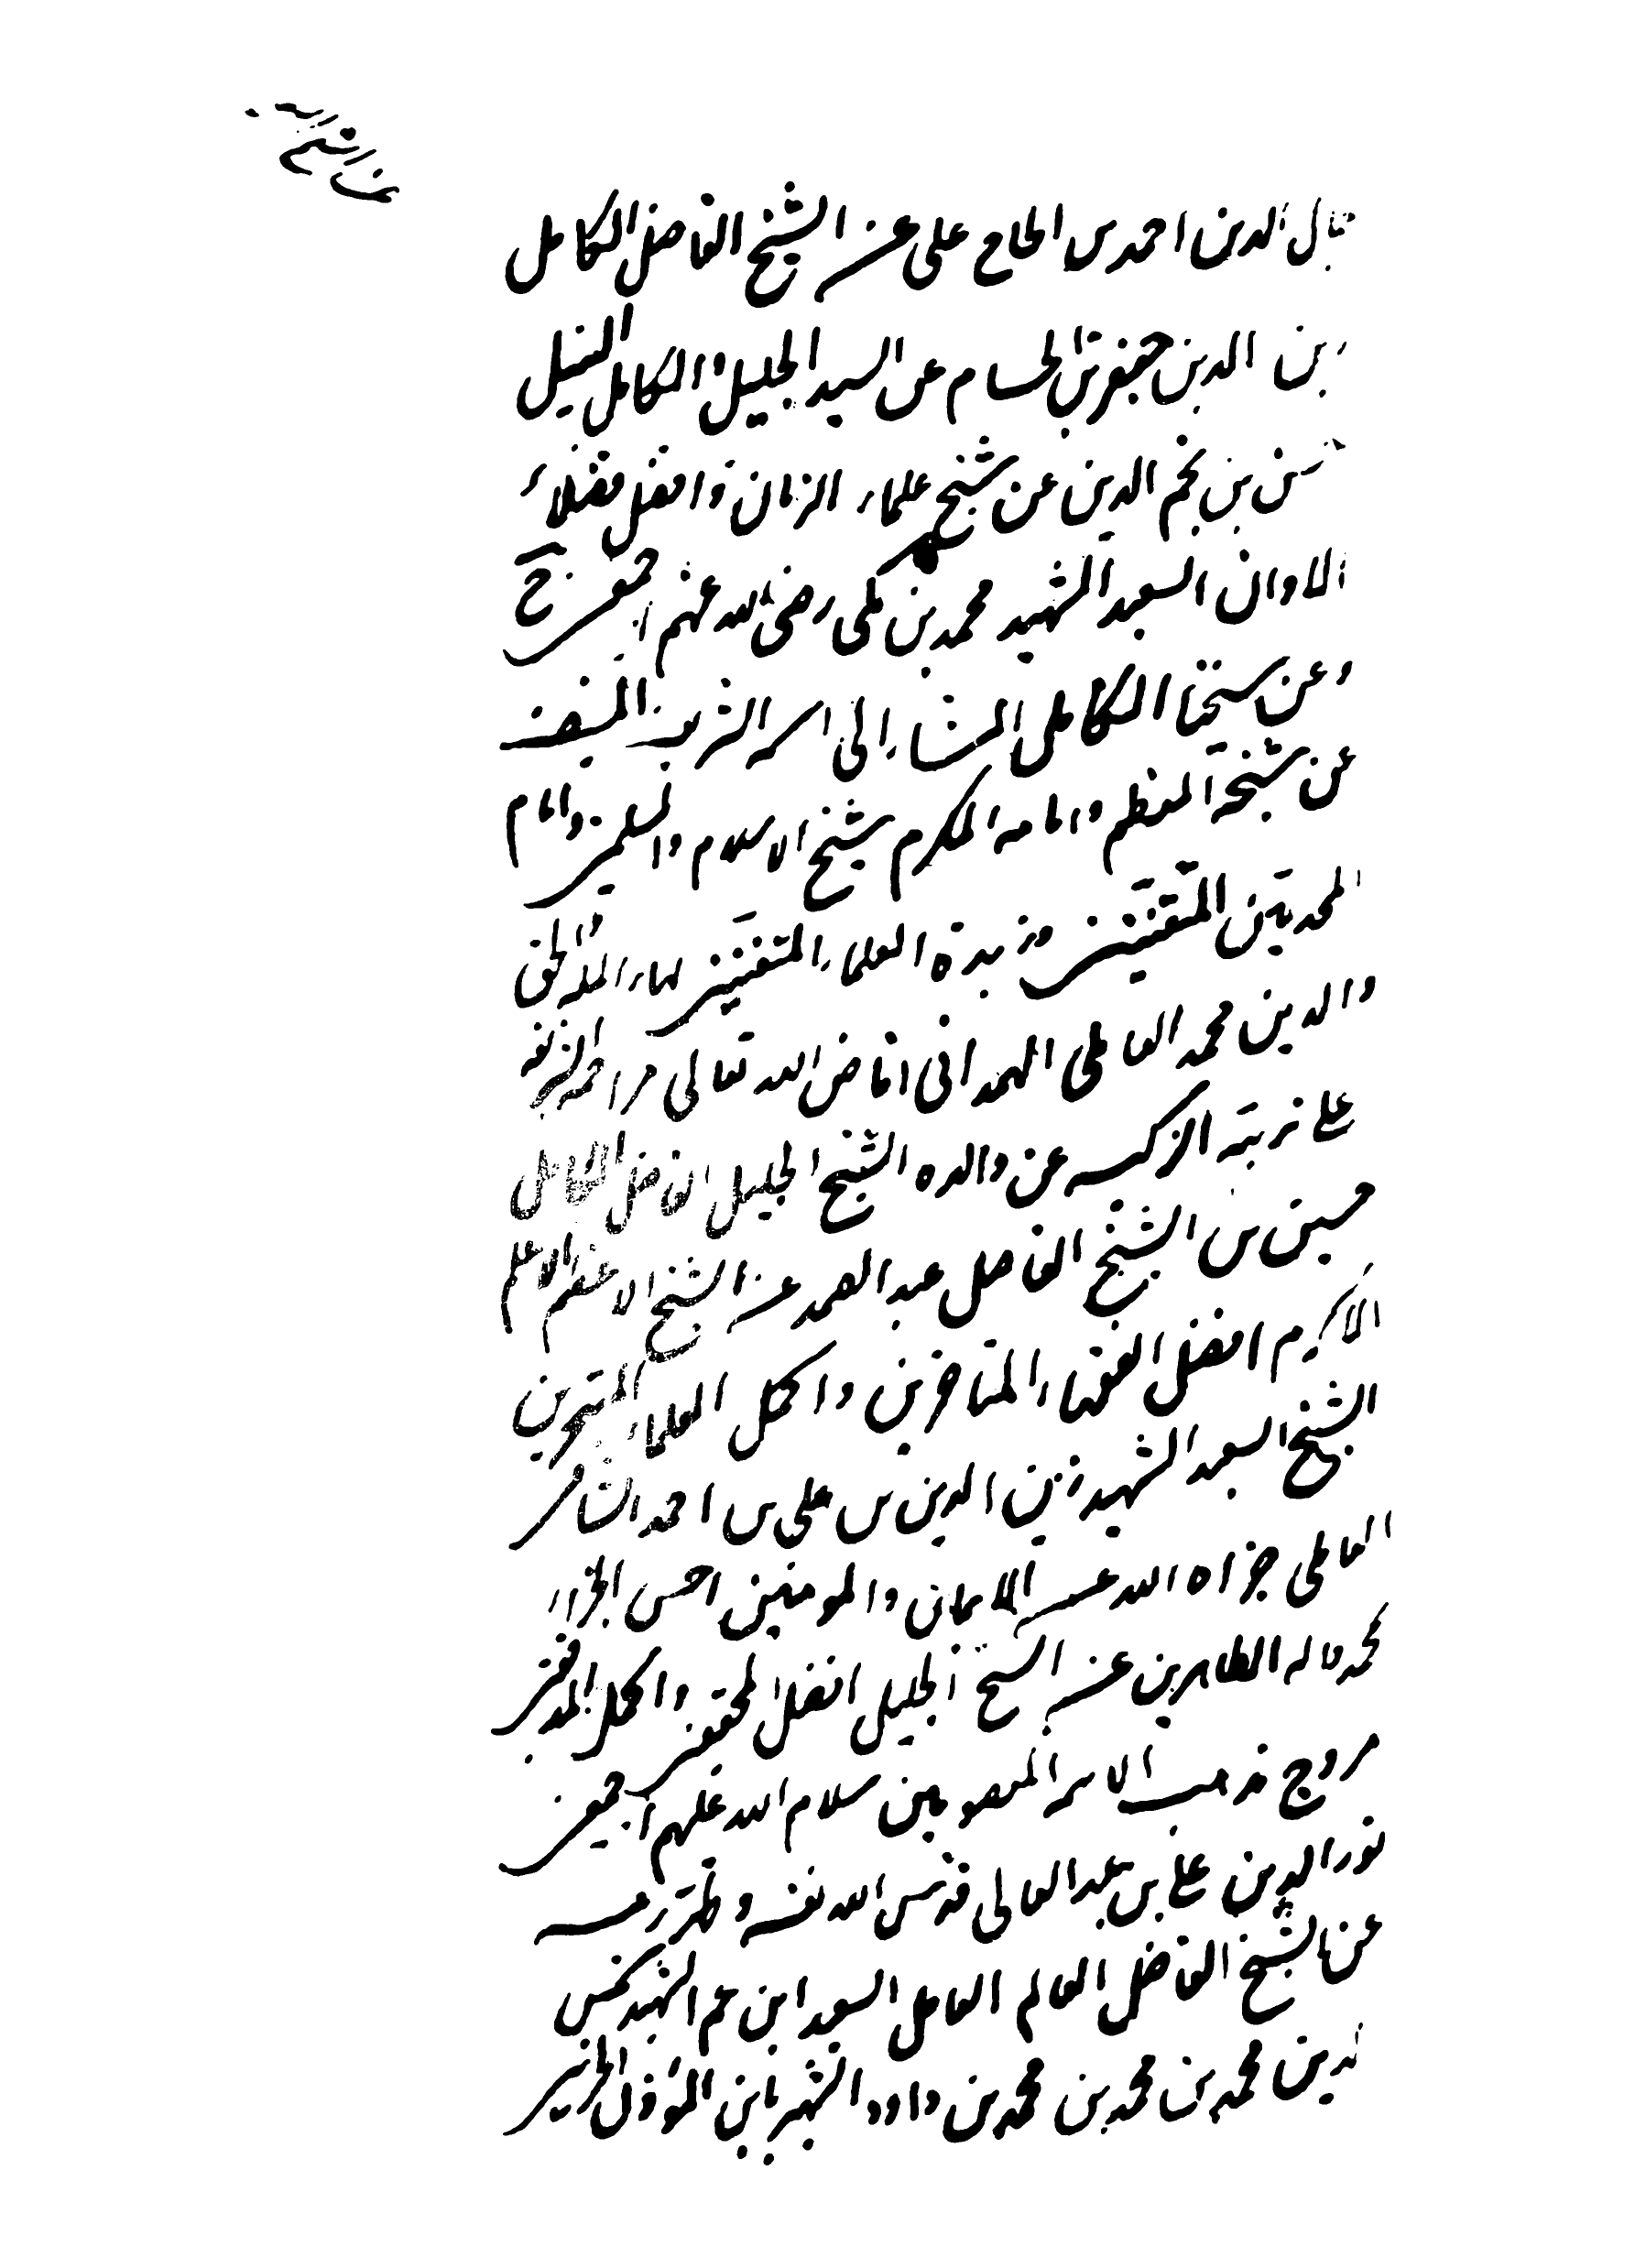 جمال الدين احمد بن الحاج على عن الشيخ الفاضل الكامل
زين الدين جعفر بن الحسام عن السيد الجليل والكامل النبيل
حسن بن نجم الدين عن شيخ علماء الزمان وافضل فضلاء
الاوان السعيد الشهيد محمد بن مكى رضى الله عنهم اجمعين ح
وعن شيخنا الكامل المشار الى اسمه الشريف
عن شيخه المعظم وامامه المكرم شيخ الاسلام والمسلمين وامام
المحدثين المتقنين وزبدة العلماء المتفننين بهاء الملة والحق
والدين محمد العاملى الهمدانى افاض الله تعالى مراحمه الشريفة
على تربته الزكيه عن والده الشيخ الجليل الفاضل الكامل
حسين بن الشيخ الفاضل عبد الصمد عن الشيخ الاعظم الاعلم
الاكرم افضل الفقهاء المتاخرين واكمل العلماء المتبحرين
الشيخ السعيد الشهيد زين الدين بن على بن احمد الشامى
العاملى جزاه الله عن الايمان والمومنين احسن الجزاء
بمحمد واله الطاهرين عن الشيخ الجليل افضل المحققين واكمل المدققين
مروج مذهب الائمة المعصومين سلام الله عليهم اجمعين
نور الدين على بن عبد العالى قدس الله نفسه وطهر رمسه
عن الشيخ الفاضل العالم العامل السعيد ابن عم الشهيد شمس
الدين محمد بن محمد بن محمد بن داود الشهير بابن المؤذن الجزينى